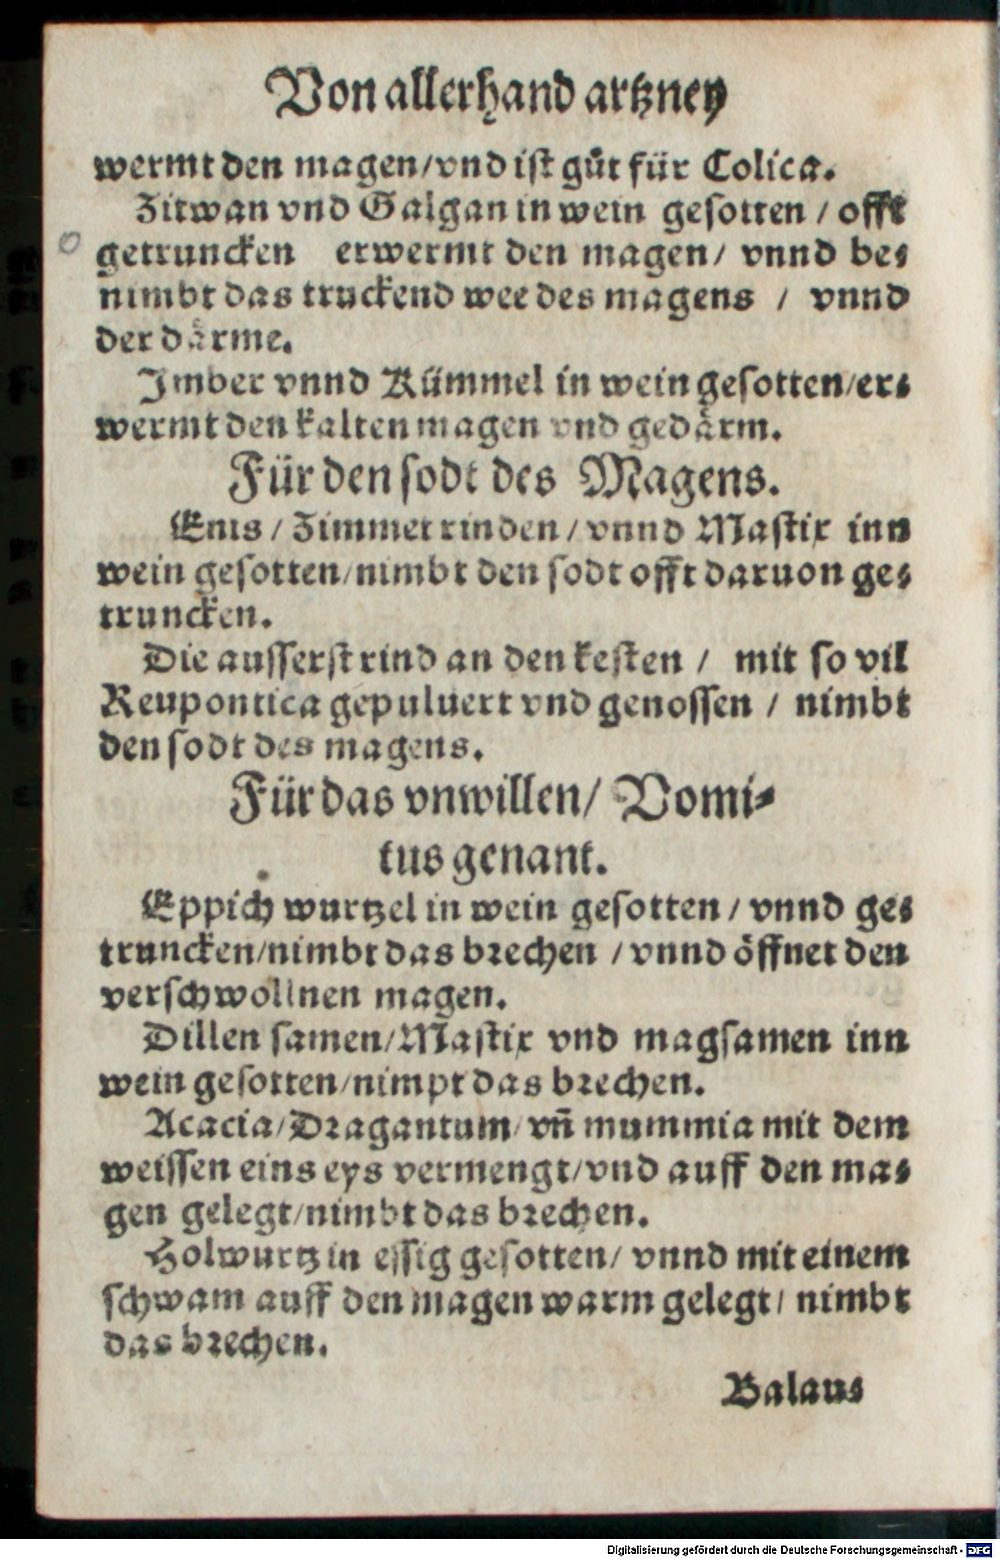 Von allerhand artzney
wermt den magen/vnd ist gůt für Colica.
Zitwan vnd Galgan in wein gesotten / offt
getruncken erwermt den magen/ vnnd be-
nimbt das truckend wee des magens / vnnd
der därme.
Imber vnnd Kümmel in wein gesotten/er-
wermt den kalten magen vnd gedärm.
Für den sodt des Magens.
Enis / Zimmet rinden / vnnd Mastix inn
wein gesotten/nimbt den sodt offt daruon ge-
truncken.
Die ausserst rind an den kesten / mit so vil
Reupontica gepuluert vnd genossen / nimbt
den sodt des magens.
Für das vnwillen/ Vomi-
tus genant.
Eppich wurtzel in wein gesotten / vnnd ge-
truncken/nimbt das brechen / vnnd öffnet den
verschwollnen magen.
Dillen samen/Mastix vnd magsamen inn
wein gesotten/nimpt das brechen.
Acacia/Dragantum/vn̄ mummia mit dem
weissen eins eys vermengt/vnd auff den ma-
gen gelegt/nimbt das brechen.
Holwurtz in essig gesotten/ vnnd mit einem
schwam auff den magen warm gelegt/ nimbt
das brechen.
Balaus
Digitalisierung gefördert durch die Deutsche Forschungsgemeinschaft - DFG